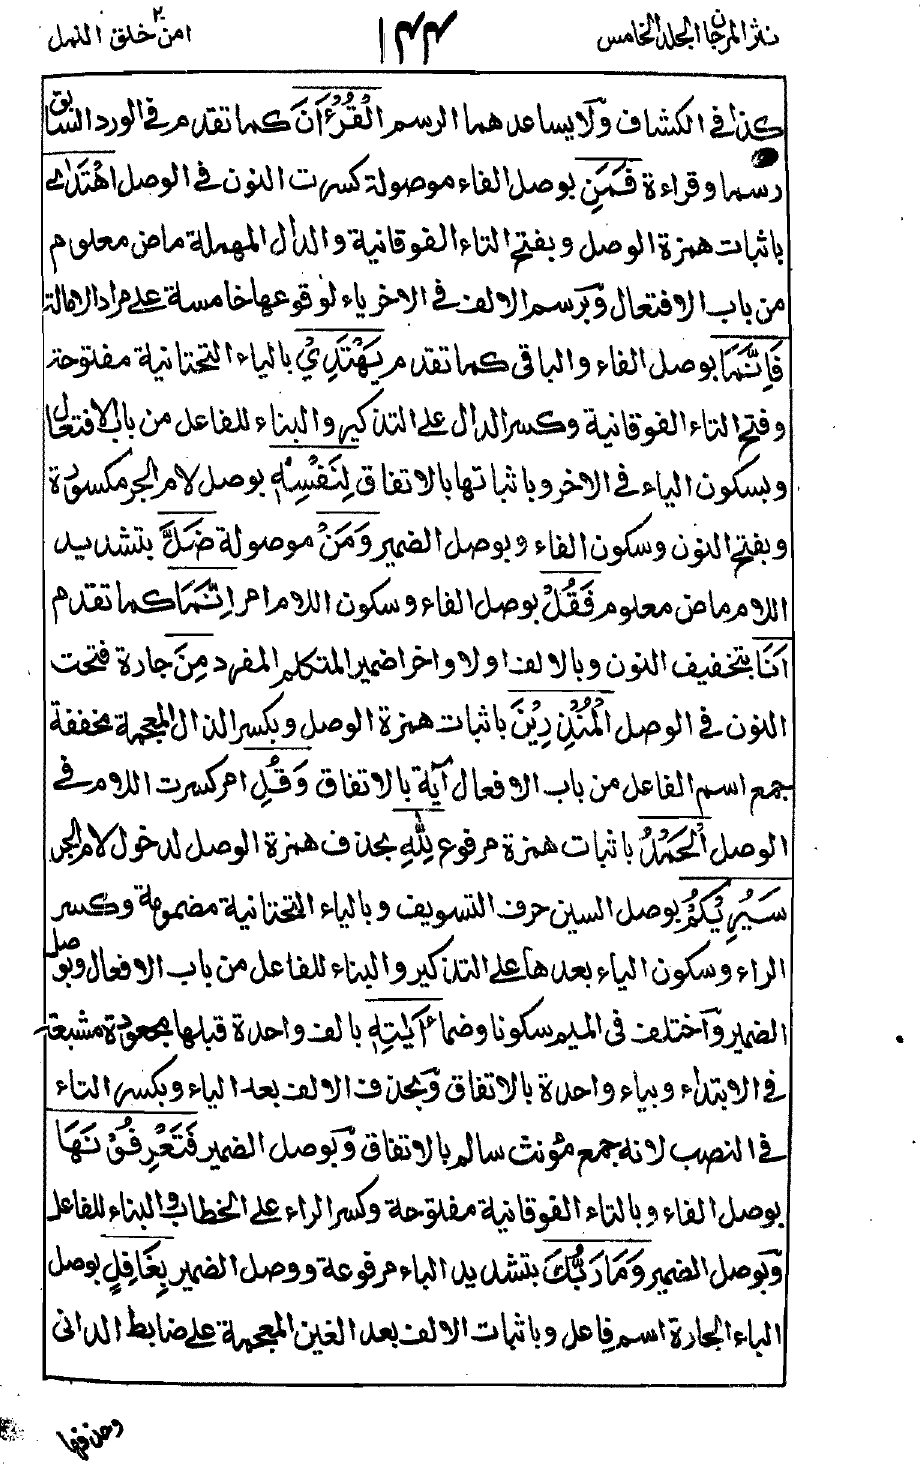 نثر المرجان المجلد الخامس
١٤٤
امن خلق ٢٠ النمل
كذا في الكشاف وَلا يساعدهما الرسم الْقُرْءَانَ كما تقدم في الورد السابق
رسما وقراءة فَمَنِ بوصل الفاء موصولة كسرت النون في الوصل اهْتَدَىٰ
باثبات همزة الوصل وبفتح التاء الفوقانية والدال المهملة ماض معلوم
من باب الافتعال وَبرسم الالف في الاخر ياء لوقوعها خامسة على مراد الامالة
فَإِنَّمَا بوصل الفاء والباقى كما تقدم يَهْتَدِيْ بالياء التحتانية مفتوحة
وفتح التاء الفوقانية وكسر الدال على التذكير والبناء للفاعل من باب الافتعال
وبسكون الياء في الاخر وباثباتها بالاتفاق لِنَفْسِهٖ بوصل لام الجر مكسورة
وبفتح النون وسكون الفاء وبوصل الضمير وَمَنْ موصولة ضَلَّ بتشديد
اللام ماض معلوم فَقُلْ بوصل الفاء وسكون اللام امر اِنَّمَا كما تقدم
اَنَا بتخفيف النون وبالالف اولا واخرا ضمير المتكلم المفرد مِنَ جارة فتحت
النون في الوصل الْمُنْذِرِيْنَ باثبات همزة الوصل وبكسر الذال المعجمة مخففة
جمع اسم الفاعل من باب الافعال آية بالاتفاق وَقُلِ امر كسرت اللام في
الوصل الْحَمْدُ باثبات همزة مرفوع لِلّٰهِ بحذف همزة الوصل لدخول لام الجر
سَيُرِيْكُمْ بوصل السين حرف التسويف وبالياء التحتانية مضمومة وكسر
الراء وسكون الياء بعدها على التذكير والبناء للفاعل من باب الافعال وبوصل
الضمير وَاختلف في الميم سكونا وضما ءَايٰتِهٖ بالف واحدة قبلها مجعودة مشبعة
في الابتداء وبياء واحدة بالاتفاق وَبحذف الالف بعد الياء وبكسر التاء
في النصب لانه جمع مؤنث سالم بالاتفاق وَبوصل الضمير فَتَعْرِفُوْنَهَا
بوصل الفاء وبالتاء الفوقانية مفتوحة وكسر الراء على الخطاب والبناء للفاعل
وَبوصل الضمير وَمَا رَبُّكَ بتشديد الباء مرفوعة ووصل الضمير بِغَافِلٍ بوصل
الباء الجارة اسم فاعل وباثبات الالف بعد الغين المعجمة على ضابط الدانى
وحذفها